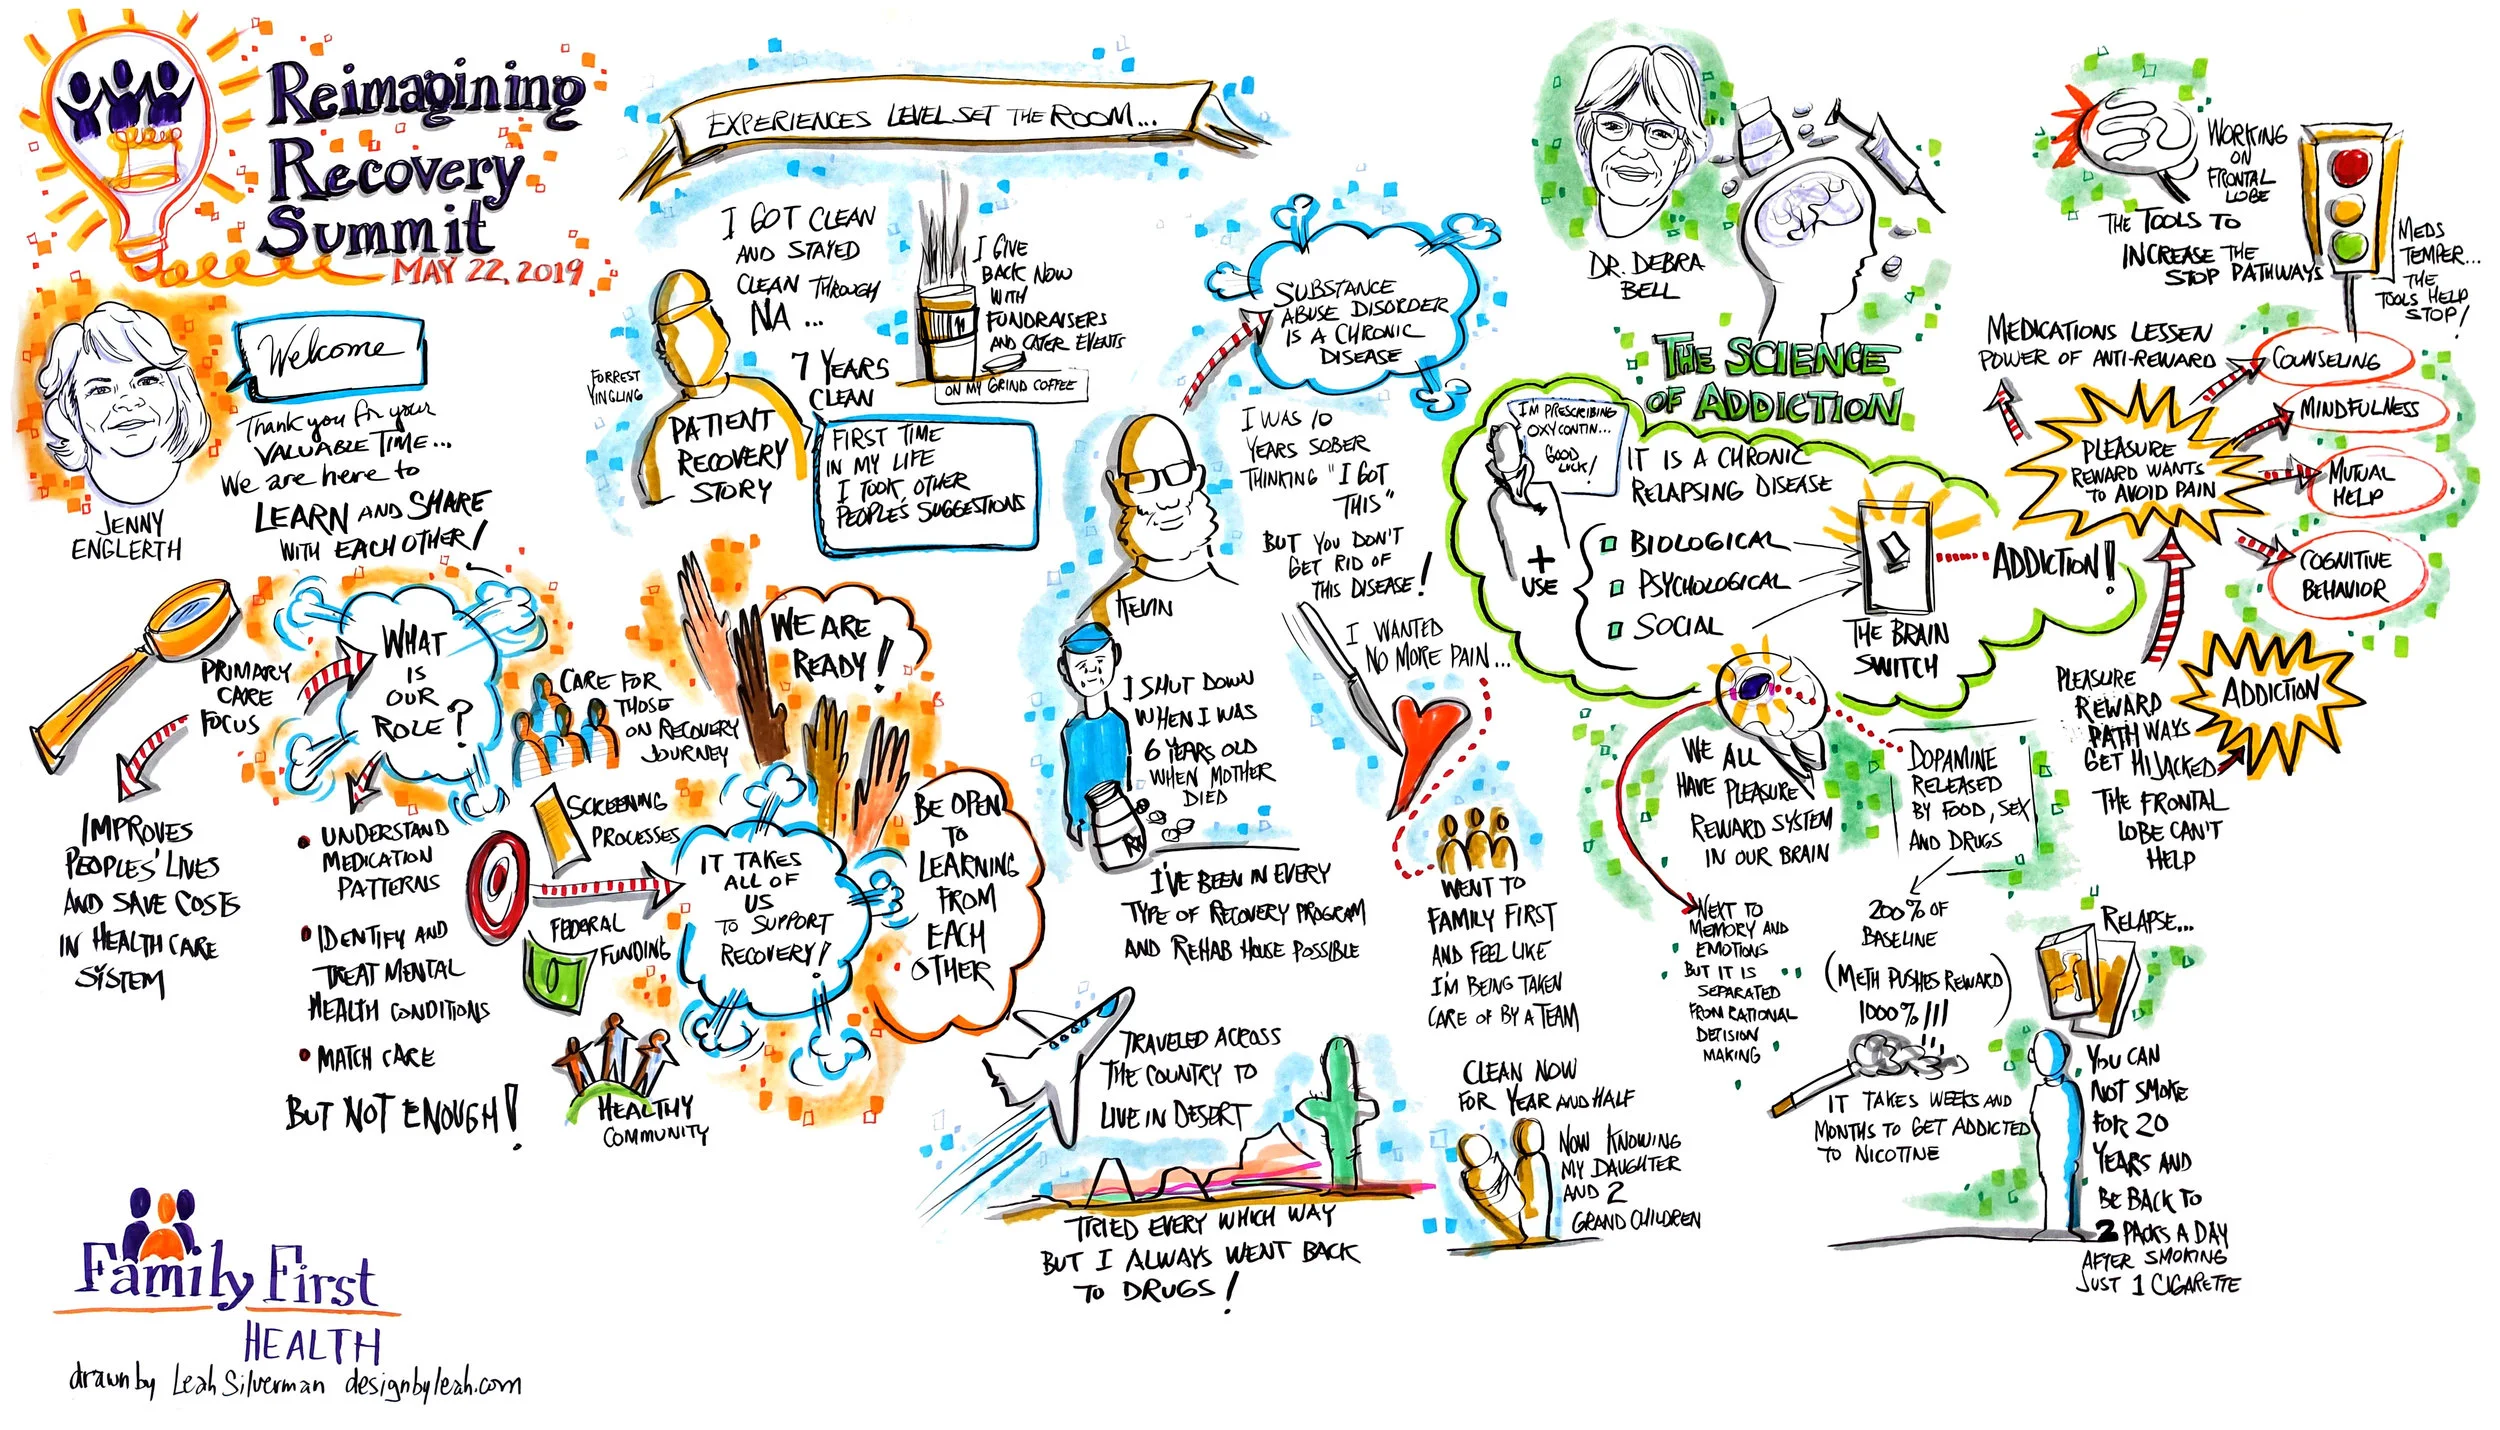 Reimagining
Recovery
Summit
MAY 22, 2019
JENNY
ENGLERTH
Welcome
Thank you for your
VALUABLE TIME...
We are here to
LEARN AND SHARE
WITH EACH OTHER!
PRIMARY
CARE
FOCUS
IMPROVES
PEOPLES' LIVES
AND SAVE COSTS
IN HEALTH CARE
SYSTEM
WHAT
IS
OUR
ROLE?
UNDERSTAND
MEDICATION
PATTERNS
IDENTIFY AND
TREAT MENTAL
HEALTH CONDITIONS
MATCH CARE
BUT NOT ENOUGH!
CARE FOR
THOSE
ON RECOVERY
JOURNEY
SCREENING
PROCESSES
FEDERAL
FUNDING
HEALTHY
COMMUNITY
WE ARE
READY!
IT TAKES
ALL OF
US
TO SUPPORT
RECOVERY!
BE OPEN
TO
LEARNING
FROM
EACH
OTHER
Family First
HEALTH
drawn by Leah Silverman designbyleah.com
EXPERIENCES LEVEL SET THE ROOM...
I GOT CLEAN
AND STAYED
CLEAN THROUGH
NA ...
7 YEARS
CLEAN
FORREST
YINGLING
PATIENT
RECOVERY
STORY
I GIVE
BACK NOW
WITH
FUNDRAISERS
AND CATER EVENTS
ON MY GRIND COFFEE
FIRST TIME
IN MY LIFE
I TOOK OTHER
PEOPLE'S SUGGESTIONS
SUBSTANCE
ABUSE DISORDER
IS A CHRONIC
DISEASE
KEVIN
I WAS 10
YEARS SOBER
THINKING "I GOT
THIS"
BUT YOU DON'T
GET RID OF
THIS DISEASE!
I SHUT DOWN
WHEN I WAS
6 YEARS OLD
WHEN MOTHER
DIED
RX
I'VE BEEN IN EVERY
TYPE OF RECOVERY PROGRAM
AND REHAB HOUSE POSSIBLE
TRAVELED ACROSS
THE COUNTRY TO
LIVE IN DESERT
TRIED EVERY WHICH WAY
BUT I ALWAYS WENT BACK
TO DRUGS!
I WANTED
NO MORE PAIN...
WENT TO
FAMILY FIRST
AND FEEL LIKE
I'M BEING TAKEN
CARE OF BY A TEAM
CLEAN NOW
FOR YEAR AND HALF
NOW KNOWING
MY DAUGHTER
AND 2
GRAND CHILDREN
DR. DEBRA
BELL
THE SCIENCE
OF ADDICTION
I'M PRESCRIBING
OXYCONTIN...
GOOD
LUCK!
IT IS A CHRONIC
RELAPSING DISEASE
+
USE
BIOLOGICAL
PSYCHOLOGICAL
SOCIAL
THE BRAIN
SWITCH
ADDICTION!
WE ALL
HAVE PLEASURE
REWARD SYSTEM
IN OUR BRAIN
NEXT TO
MEMORY AND
EMOTIONS
BUT IT IS
SEPARATED
FROM RATIONAL
DECISION
MAKING
DOPAMINE
RELEASED
BY FOOD, SEX
AND DRUGS
200% OF
BASELINE
(METH PUSHES REWARD)
1000%!!!
IT TAKES WEEKS AND
MONTHS TO GET ADDICTED
TO NICOTINE
RELAPSE...
YOU CAN
NOT SMOKE
FOR 20
YEARS AND
BE BACK TO
2 PACKS A DAY
AFTER SMOKING
JUST 1 CIGARETTE
PLEASURE
REWARD
PATHWAYS
GET HIJACKED
THE FRONTAL
LOBE CAN'T
HELP
ADDICTION
PLEASURE
REWARD WANTS
TO AVOID PAIN
MEDICATIONS LESSEN
POWER OF ANTI-REWARD
COUNSELING
MINDFULNESS
MUTUAL
HELP
COGNITIVE
BEHAVIOR
WORKING
ON
FRONTAL
LOBE
THE TOOLS TO
INCREASE THE
STOP PATHWAYS
MEDS
TEMPER...
THE
TOOLS HELP
STOP!